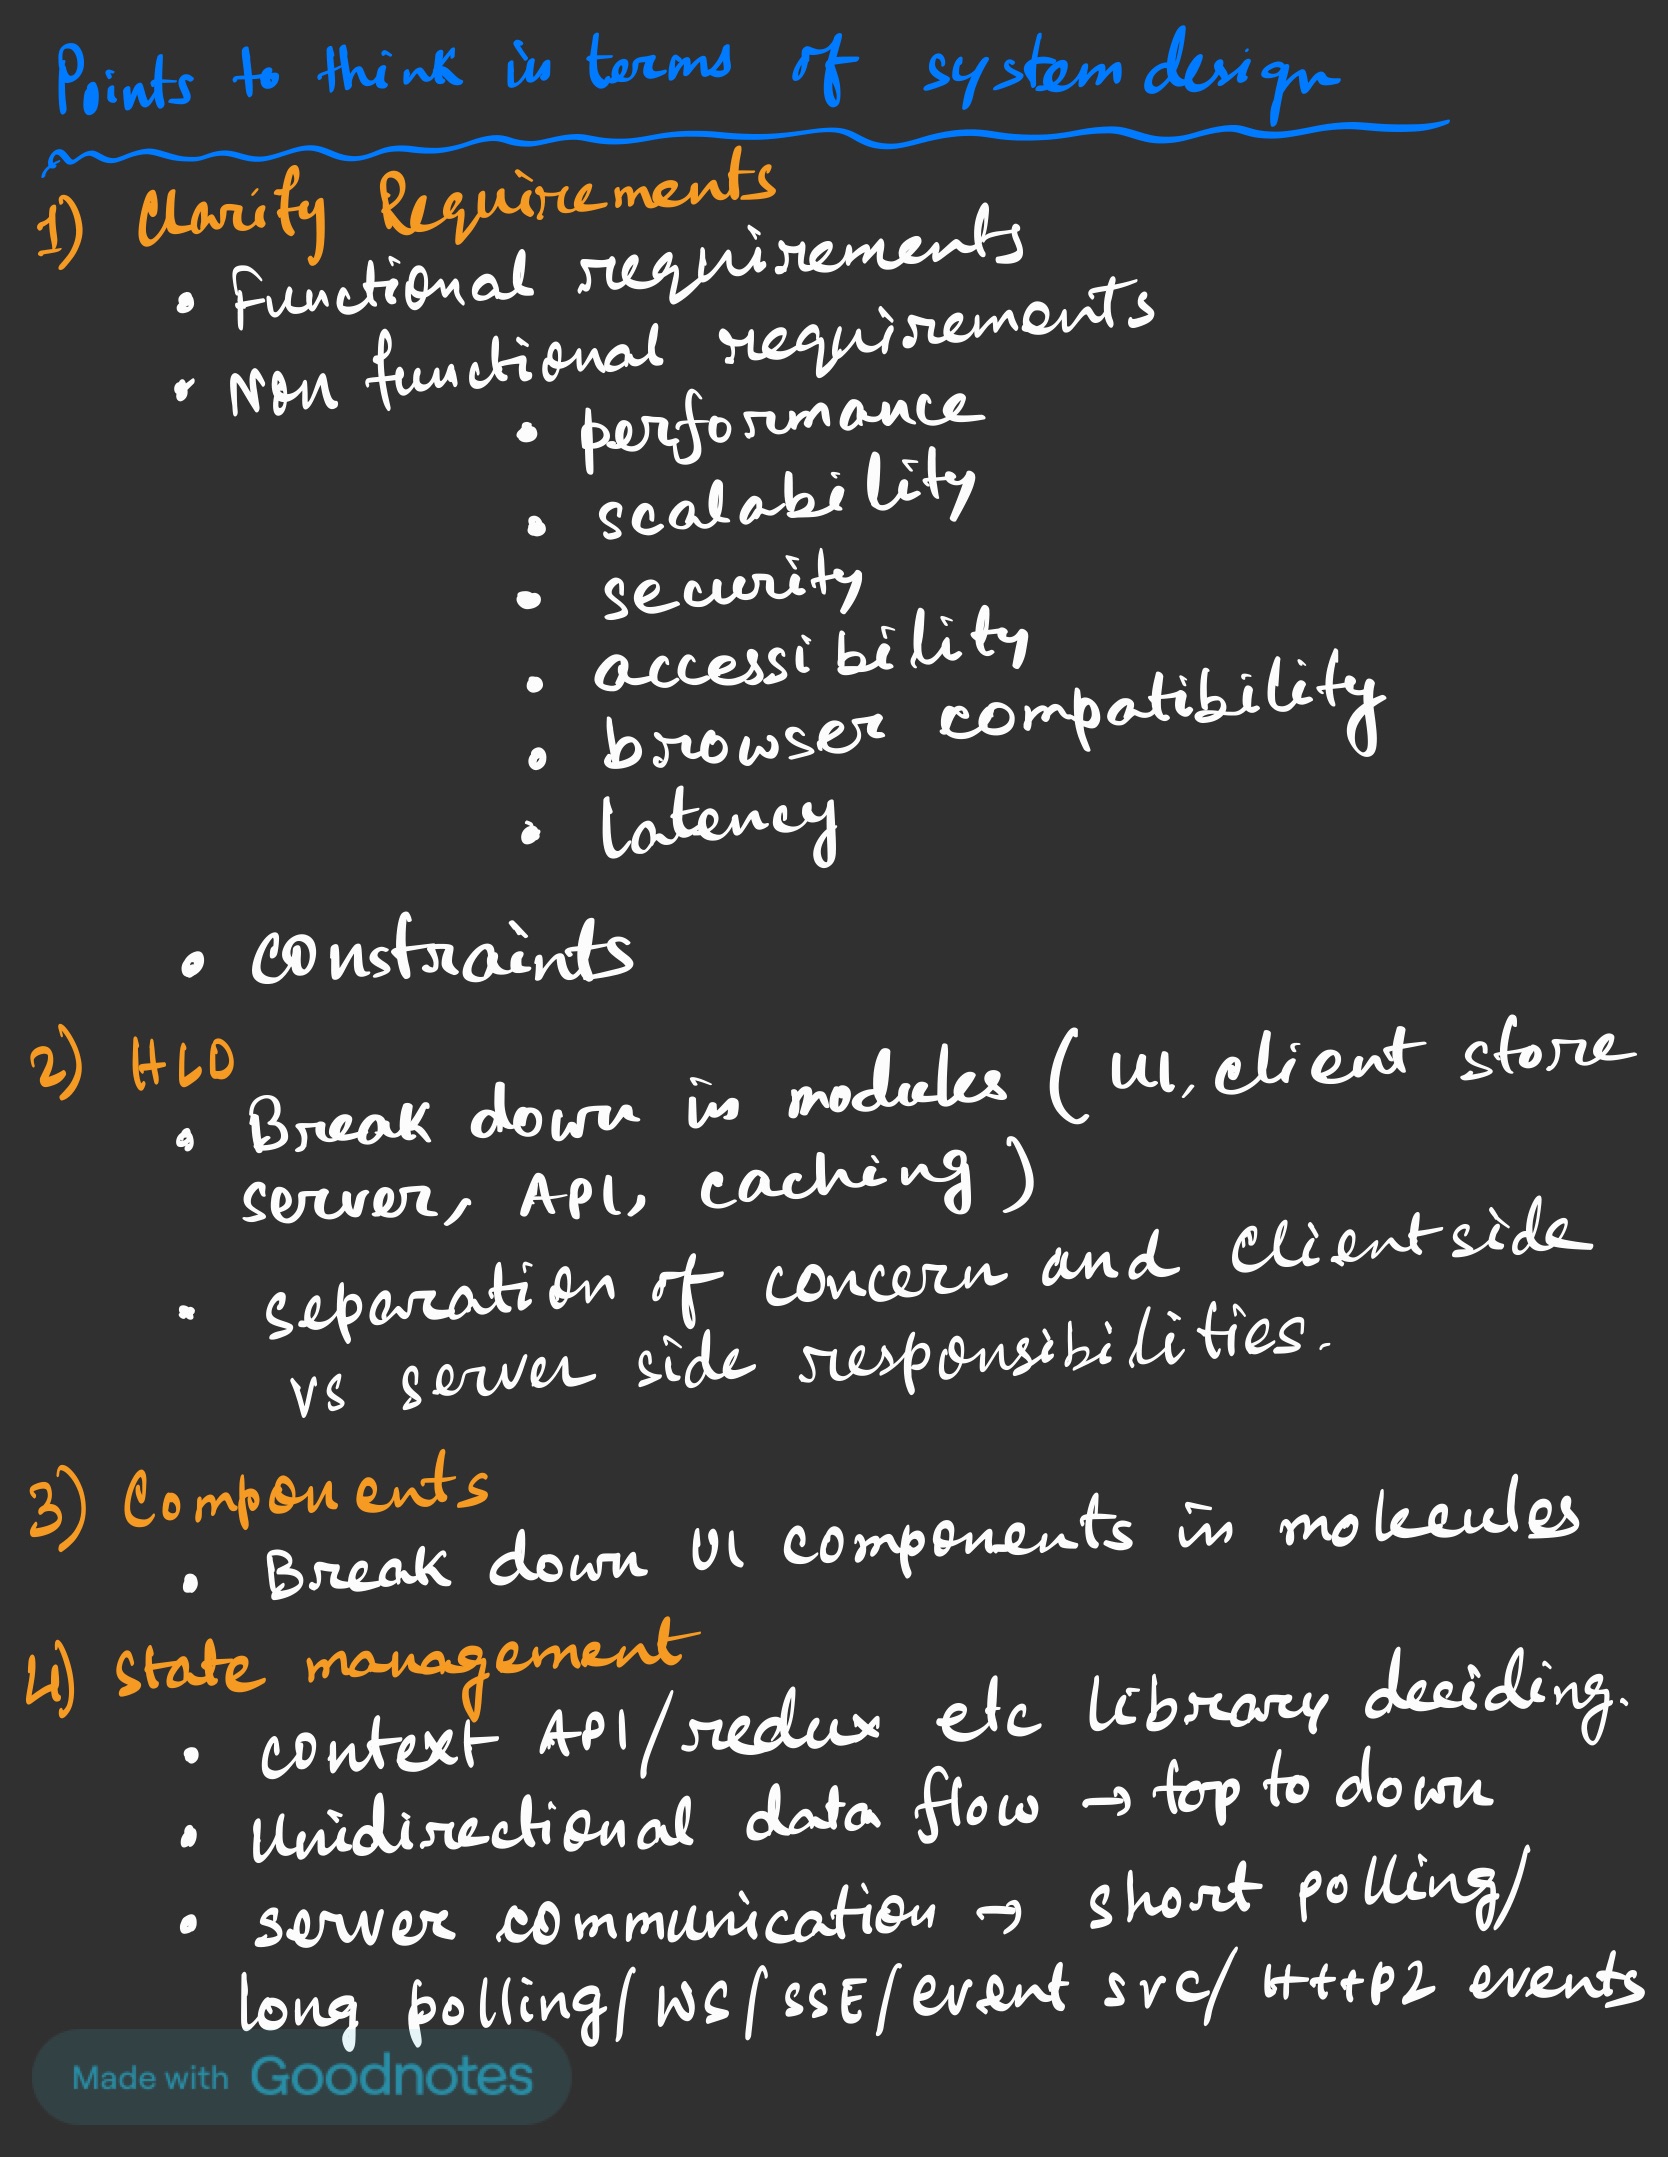 Points to think in terms of system design
1) Clarify Requirements
• Functional requirements
• Non functional requirements
• performance
• scalability
• security
• accessibility
• browser compatibility
• latency
• constraints
2) HLD
• Break down in modules (UI, client store
server, API, caching)
• separation of concern and clientside
vs server side responsibilities.
3) Components
• Break down UI components in molecules
4) state management
• context API/redux etc library deciding.
• Unidirectional data flow → top to down
• server communication → short polling/
long polling/WS/SSE/event src/HTTP2 events
Made with Goodnotes